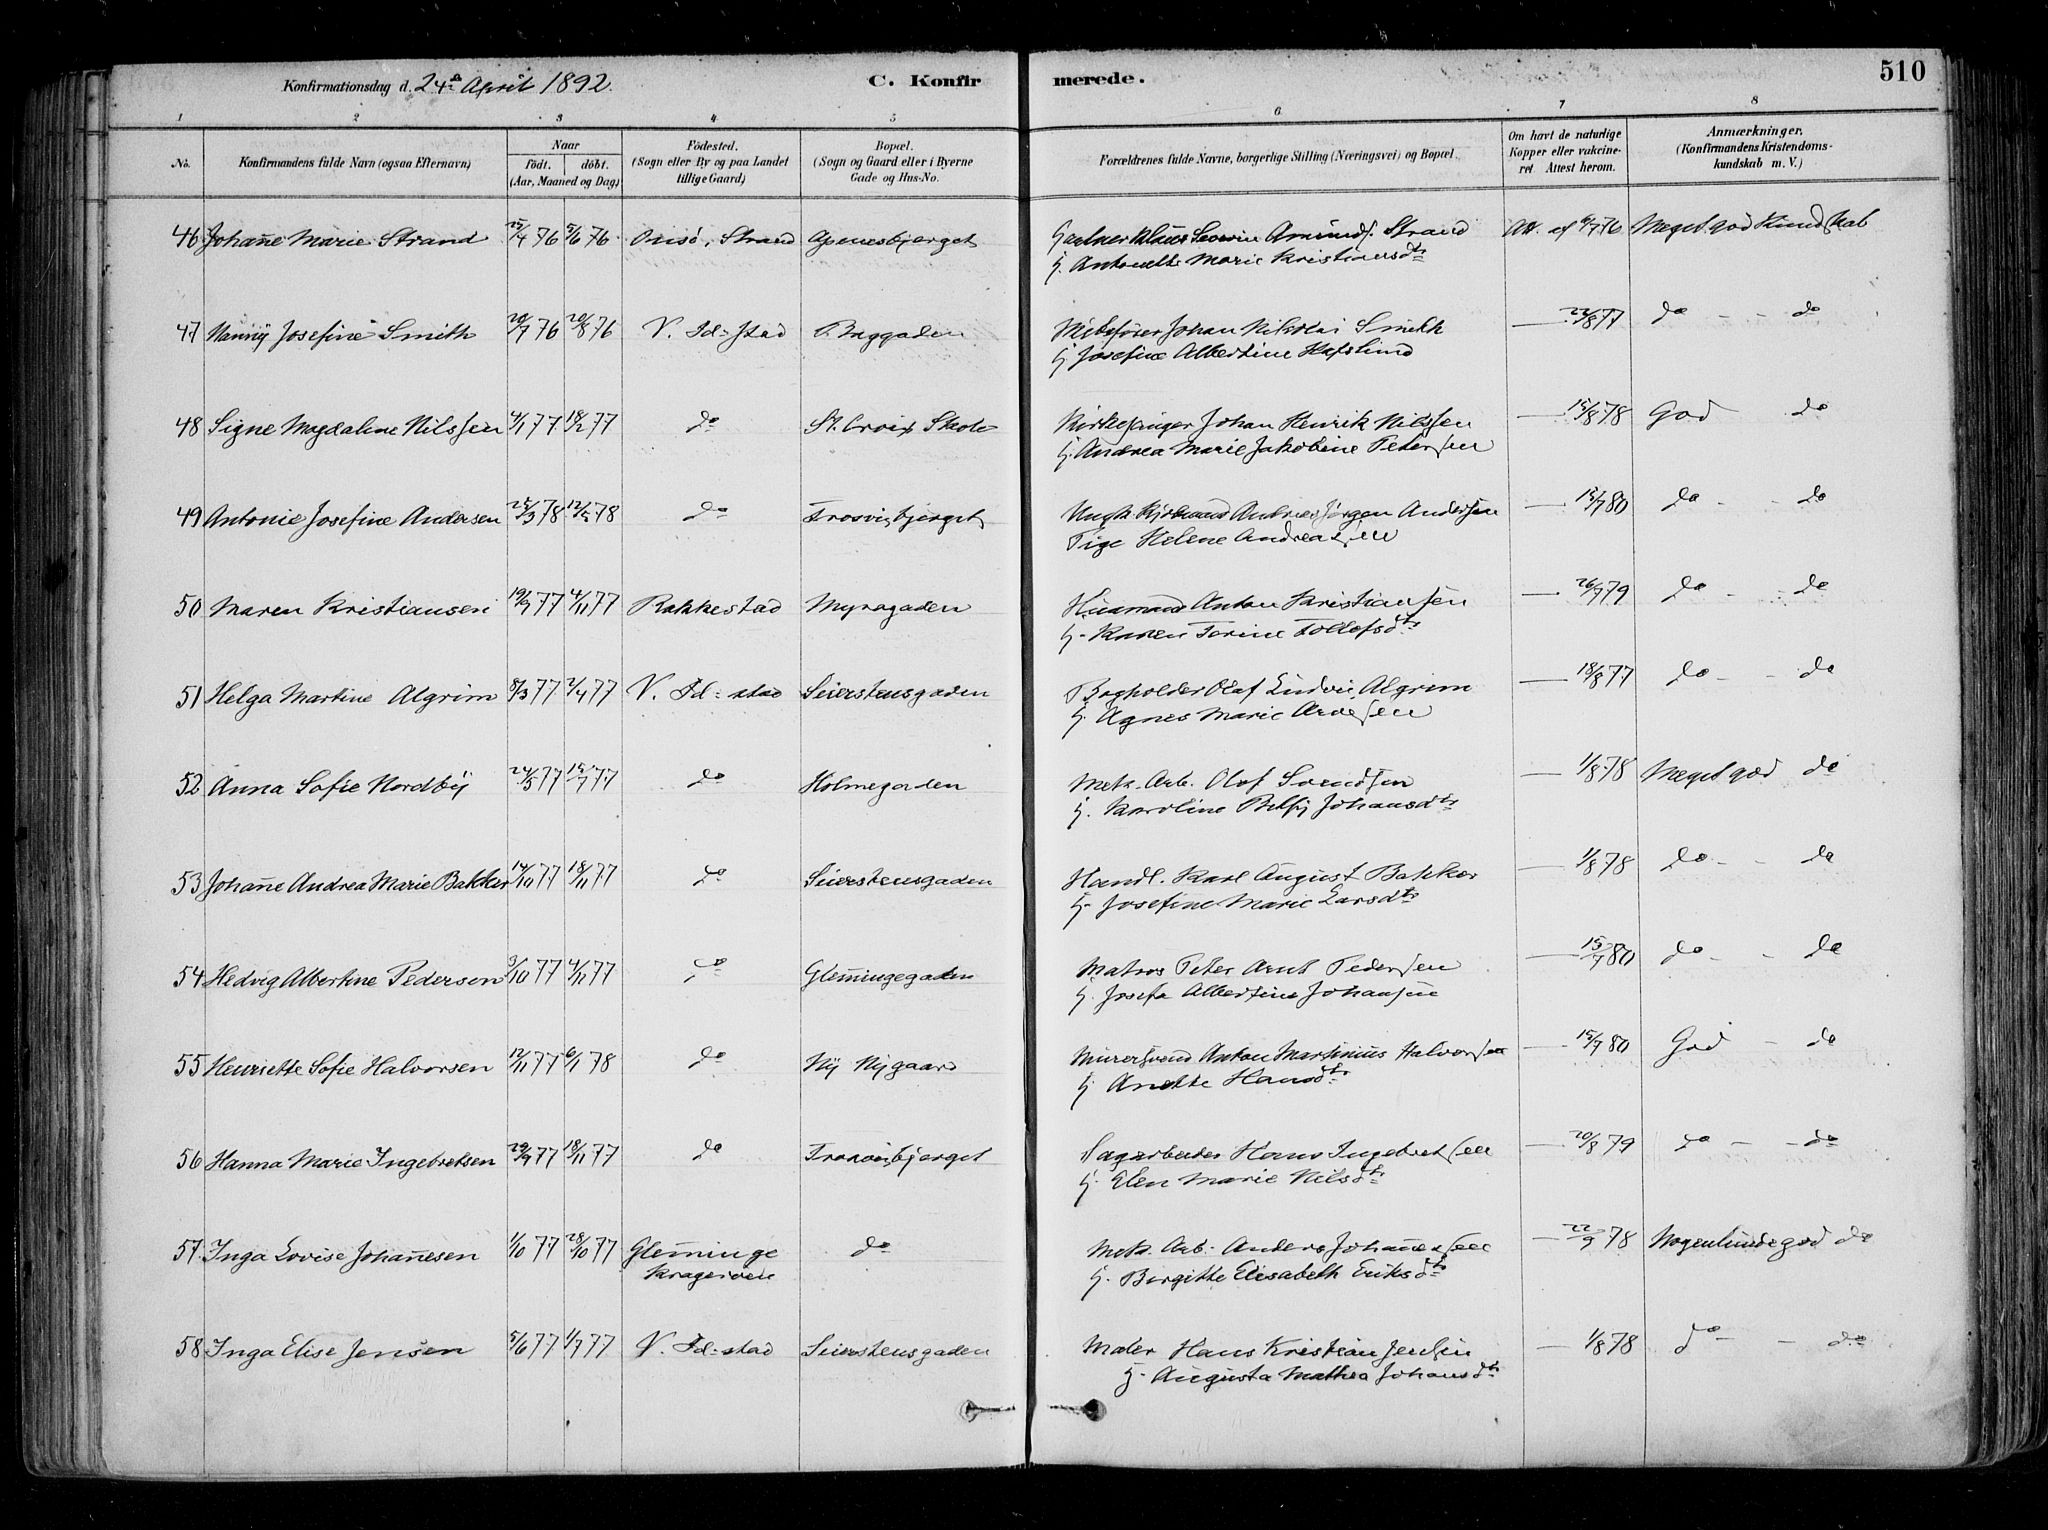 Konfirmationsdag d. 24de April 1892.
C. Konfirmerede.
510
1 2 3 4 5 6 7 8
No.
Konfirmandens fulde Navn (ogsaa Efternavn)
Naar
född. döbt.
(Aar, Maaned og Dag)
Födested.
(Sogn eller By og paa Landet
tillige Gaard)
Bopæl.
(Sogn og Gaard eller i Byerne
Gade og Hus-No.
Forældrenes fulde Navne, borgerlige Stilling (Næringsvei) og Bopæl.
Om havt de naturlige
Kopper eller vakcine-
ret Attest herom.
Anmærkninger.
(Konfirmandens Kristendoms-
kundskab m. V.)
46 Johanne Marie Strand 25/4 76 5/6 76 Onsö, Strand Apenesbjerget Gartner Severin Amunds. Strand Att. af 6/7 76 Meget god Kundskab
H. Antonette Marie Kristiansdtr
47 Nanny Josefine Smith 20/7 76 20/8 76 V. Fd=stad Baggaden Johan Nikolai Smith — 22/8 77 do - - do
H. Josefine Albertine Hafslund
48 Signe Magdalene Nilssen 4/1 77 18/2 77 do St. Croix Skole Kirkesanger Johan Henrik Nilssen — 15/8 78 God do
H. Andrea Marie Jakobine Petersen
49 Antonie Josefine Andersen 25/3 78 12/5 78 do Trosvigbjerget Andreas Jørgen Andersen — 15/7 80 do - - do
Pige Helene Andreassen
50 Maren Kristiansen 19/9 77 4/11 77 Rakkestad Myragaden Husmand Anton Kristiansen — 26/9 79 do - - do
H. Karen Torine Tollefsdtr
51 Helga Martine Algrim 8/3 77 2/4 77 V. Fd=stad Seierstensgaden Bogholder Olaf Ludvig Algrim — 18/8 77 do - - do
H. Agnes Marie Arvesen
52 Anna Sofie Nordby 24/5 77 15/7 77 do Holmegaden Mek. Arb. Olof Svendsen — 1/8 78 Meget god do
H. Karoline Betsy Johansdtr
53 Johanne Andrea Marie Bakker 14/10 77 18/11 77 do Seierstensgaden Handl. Karl August Bakker — 1/8 78 do - - do
H. Josefine Marie Larsdtr
54 Hedvig Albertine Pedersen 3/10 77 4/11 77 do Glemmingegaden Matros Peter Arnt Pedersen — 15/7 80 do - - do
H. Josefa Albertine Johansen
55 Henriette Sofie Halvorsen 12/11 77 6/1 78 do Ny Nygaard Murersvend Anton Martinius Halvorsen — 15/7 80 God - do
H. Anette Hansdtr
56 Hanna Marie Ingebretsen 29/9 77 18/11 77 do Trosvigbjerget Sagarbeider Hans Ingebretsen — 20/8 79 do - - do
H. Elen Marie Nilsdtr
57 Inga Lovise Johannesen 1/10 77 28/10 77 Glemminge do Mek. Arb. Anders Johannessen — 22/9 78 Nogenlunde god do
Krageröen H. Birgitte Elisabeth Eriksdtr
58 Inga Elise Jensen 5/6 77 1/7 77 V. Fd=stad Seierstensgaden Maler Hans Kristian Jensen — 1/8 78 do - - do
H. Augusta Mathea Johansdtr